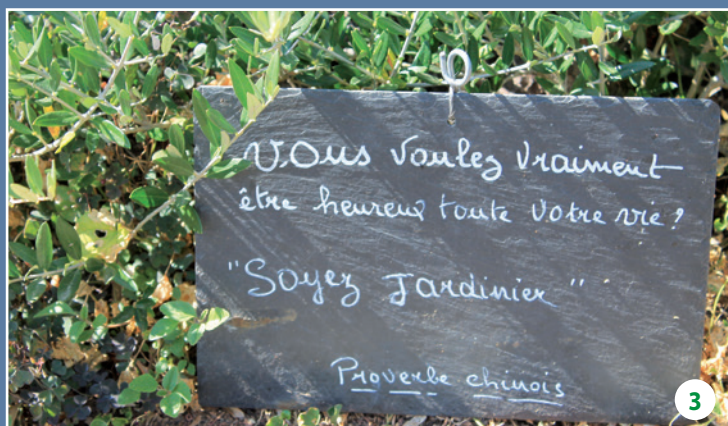 Vous voulez vraiment
être heureux toute votre vie ?
"Soyez Jardinier"
Proverbe chinois
3